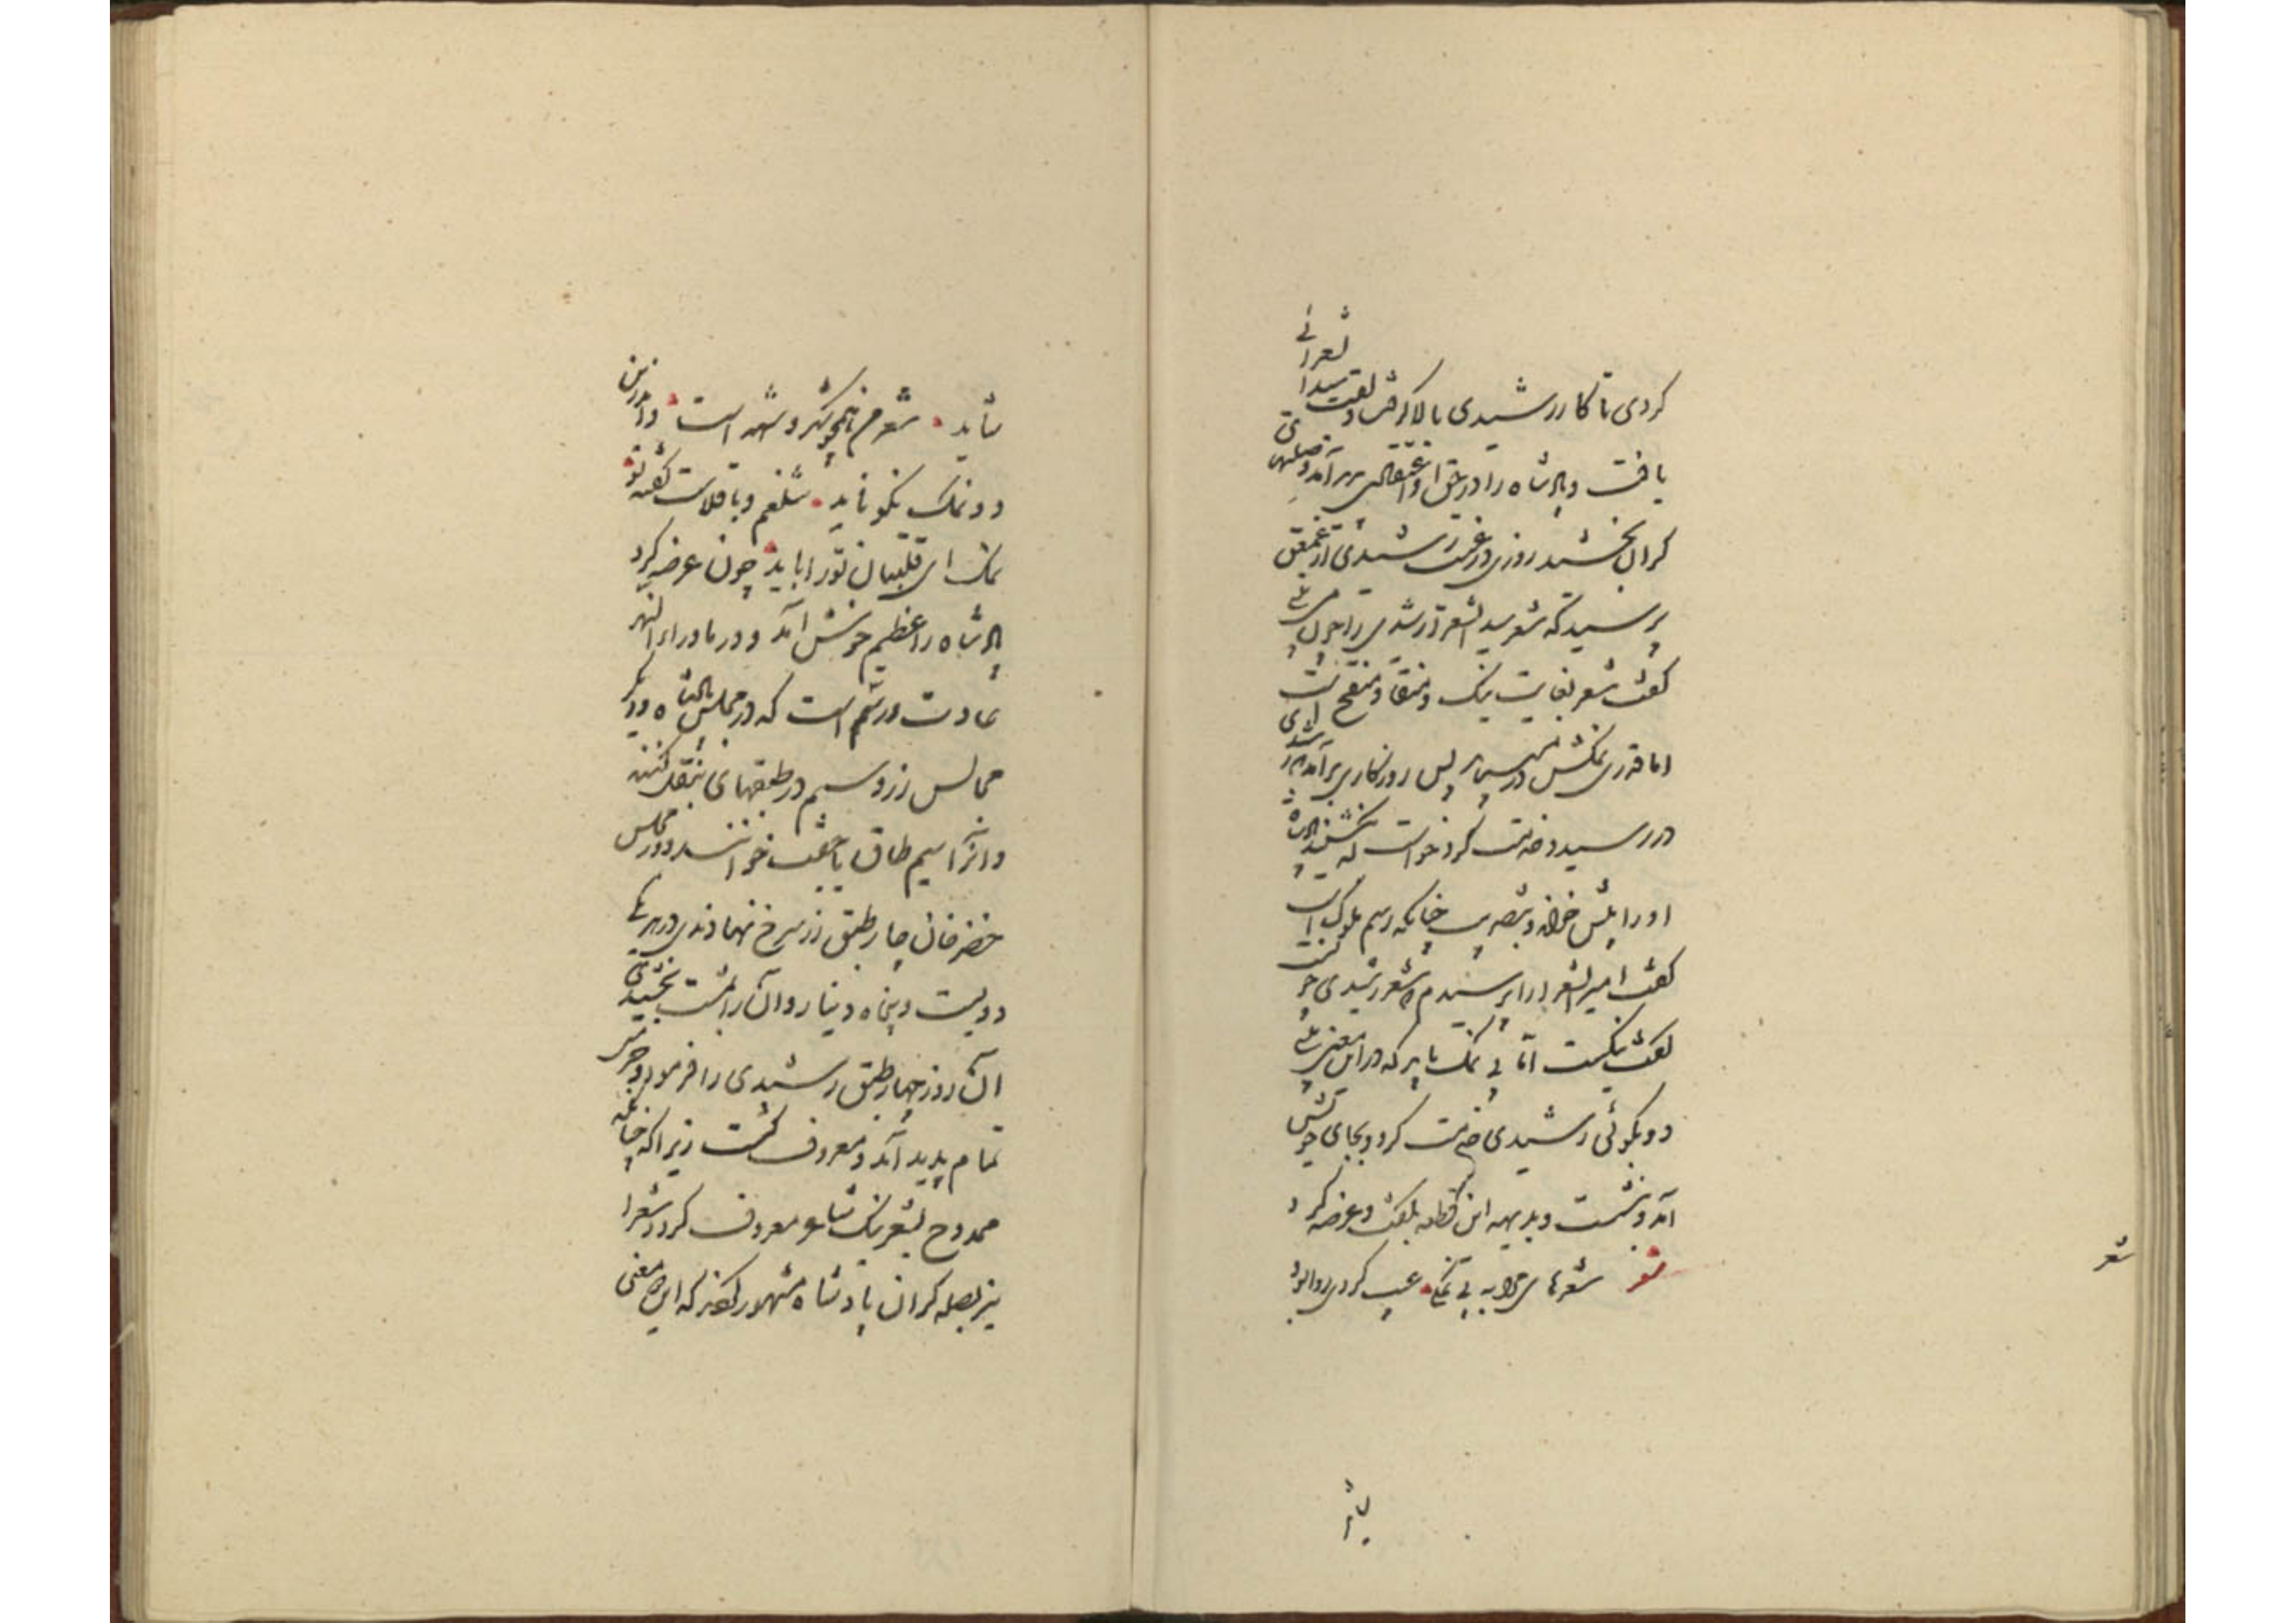 کردی تا کار رشیدی بالا گرفت و لقب سید الشعرائی
یافت و پادشاه را در حق او اعتقادی پدید آمد و صلتهای
گران بخشید روزی در غیبت رشیدی از عمعق
پرسید که شعر سید الشعرا رشیدی را چون می بینی
گفت شعر بغایت نیک و منقا و منقح است
اما قدری نمکش در میباید پس روزگاری برآمد که رشیدی
در رسید و خدمت کرد خواست که بنشیند پادشاه
او را پیش خواند و بتضریب چنانکه رسم ملوک است
گفت امیر الشعرا را پرسیدم که شعر رشیدی چونست
گفت نیکست اما بی نمک باید که در این معنی بیتی
دو بگوئی رشیدی خدمت کرد و بجای خویش
آمد و بنشست و بدیهه این قطعه بگفت و عرضه کرد
شعر شعرهای مرا به بی نمکی عیب کردی روا بود
شاید
شعر
شاید شعر من همچو شکر و شهد است واندرین
دو نمک نکو ناید شلغم و باقلاست گفته تو
نمک ای قلتبان تو را باید چون عرضه کرد
پادشاه را عظیم خوش آمد و در ماوراء النهر
عادت و رسم است که در مجلس پادشاه و دیگر
مجالس زر و سیم در طبقهای بنقل کنند
و آنرا سیم طاق یا جفت خوانند و در مجلس
خضر خان چار طبق زر سرخ نهادندی در هر یکی
دویست و پنجاه دینار و آن را بمشت بخشیدی
آن روز چهار طبق رشیدی را فرمود و حرمتی
تمام پدید آمد و معروف گشت زیرا که چنانکه
ممدوح بشعر نیک شاعر معروف گردد شعرا
نیز بصله گران پادشاه مشهور گردند که این معنی